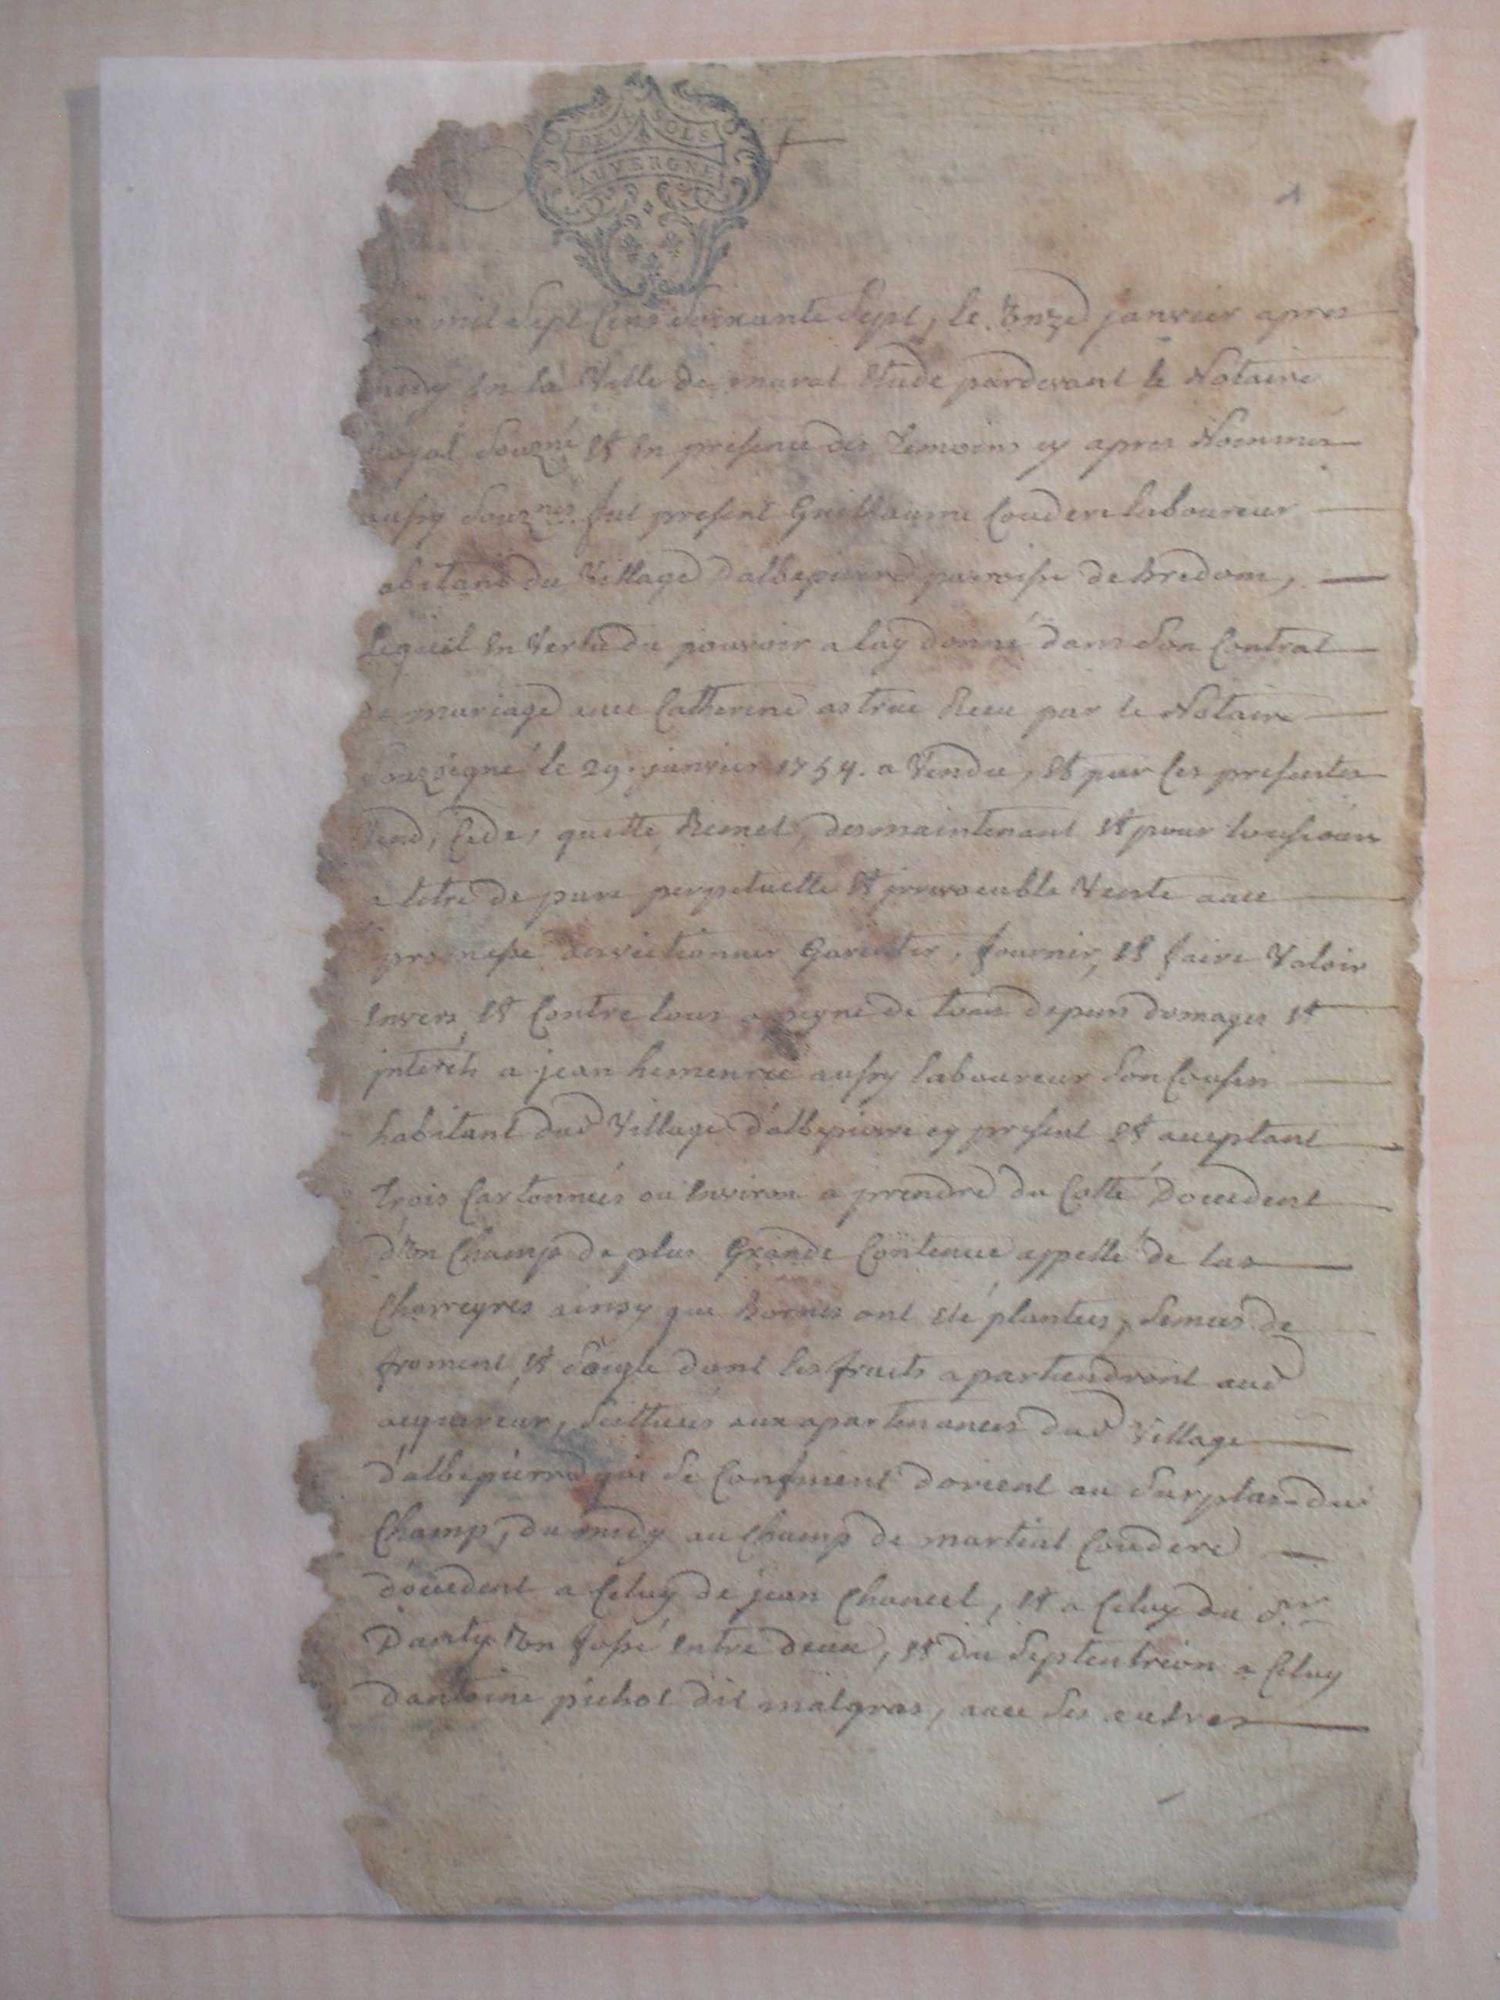 DEUX SOLS
AUVERGNE
1
en mil Sept Cens Soixante Sept, le Onze janvier apres
midy En la Ville de murat Etude pardevant le Notaire
Royal Souzné Et En presence des temoins cy apres Nommés
aussy Souznés fut present Guillaume Couderc laboureur
abitant du Village Dalbepierre parroisse de Bredom,
Lequel En Vertu du pouvoir a luy donné dans Son Contrat
de mariage avec Catherine astruc Receu par le Notaire
Souzsigné le 29. janvier 1754. a Vendu, Et par ces presentes
Vend, Cede, quitte Remet, desmaintenant Et pour tousiours
a titre de pure perpetuelle Et jrrevocable Vente avec
promesse Garentir, fournir, Et faire Valoir
Envers Et Contre tous a peyne de tous depens domages Et
jnterêts a jean aussy laboureur Son Cousin
habitant dud Village d'albepierre cy present Et aceptant
trois Cartonnées ou Environ a prendre du Cotté Doccident
d'Un Champ de plus Grande Contenue appellé de las
Charreyres ainsy que Bornes ont Eté plantées, Semées de
froment Et Seigle dont les fruits apartiendront aud
acquereur, Scittuées aux apartenances dud Village
d'albepierre qui Se Confinent dorient au Surplus dud
Champ, du midy au Champ de martial Couderc
doccident a Celuy de jean Chancel, Et a Celuy du Sr
Un fossé Entre deux, Et du Septentrion a Celuy
dantoine pichot dit malgras, avec Ses autres